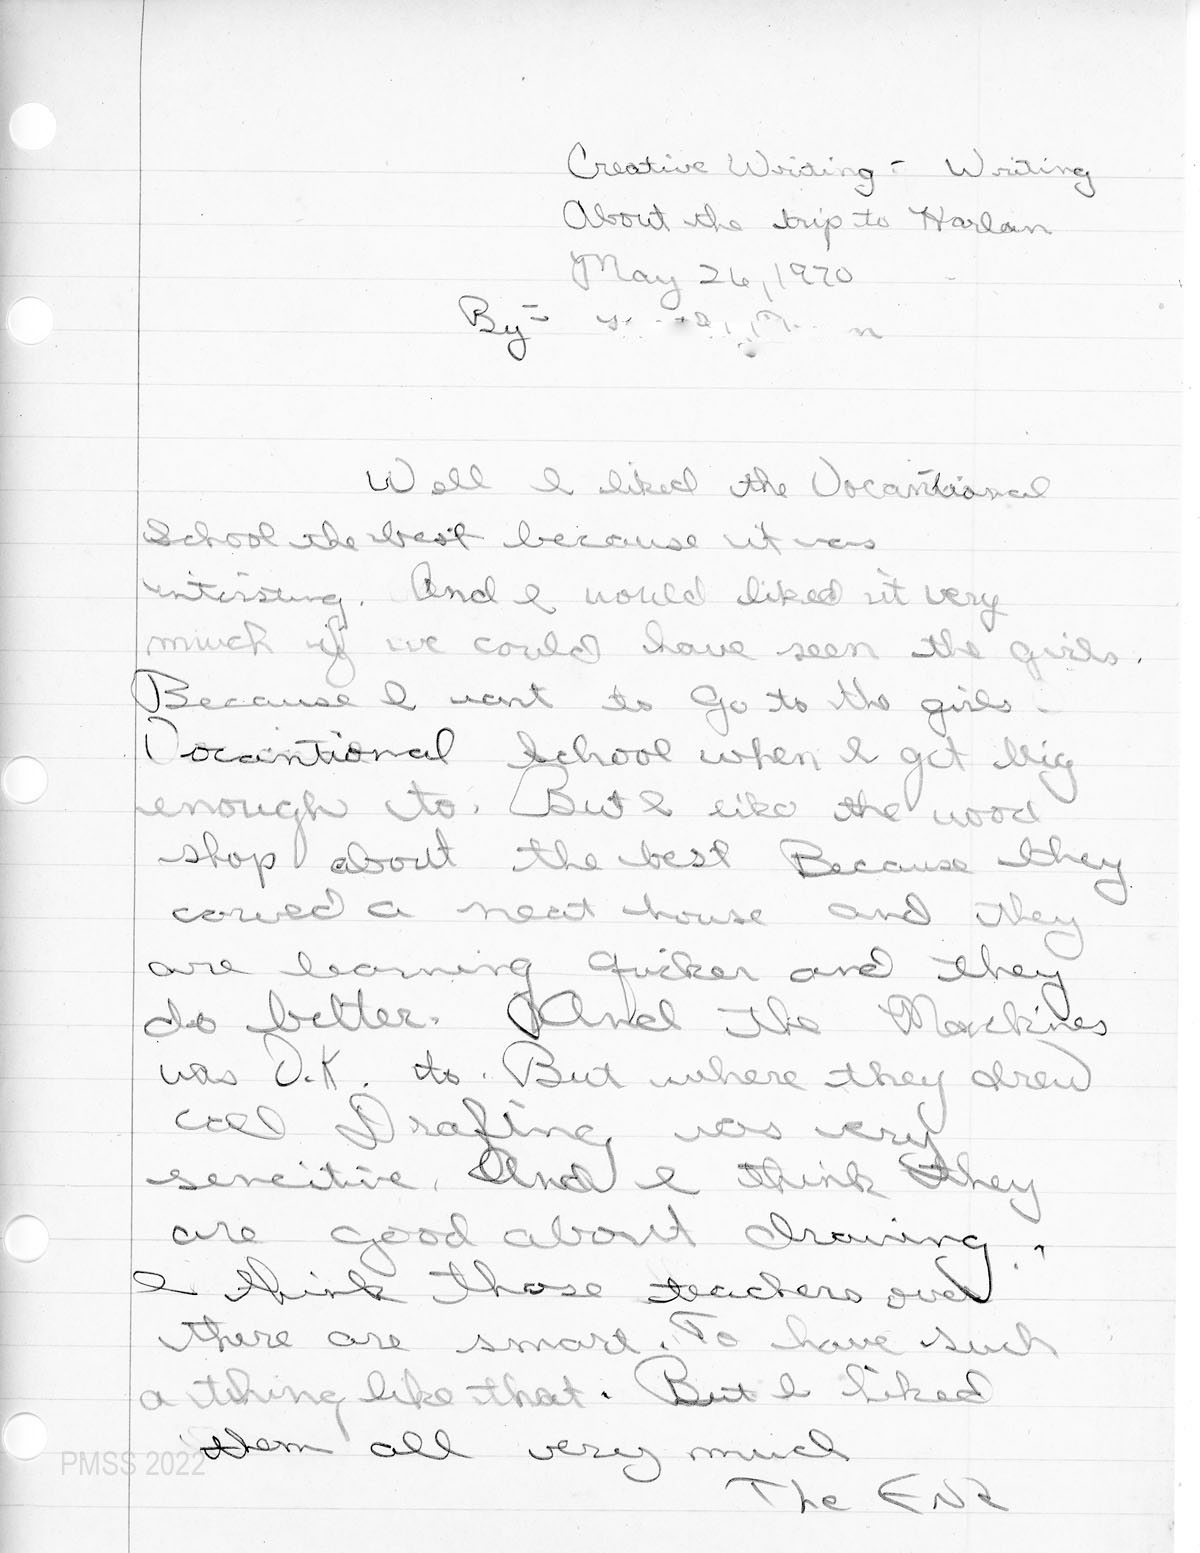 Creative Writing - Writing
About the trip to Harlan
May 26, 1970
By -
Well I liked the Vocantional
School the best because it was
intersting. And I would liked it very
much if we could have seen the girls.
Because I want to Go to the girls
Vocantional School when I get big
enough to. But I like the wood
shop about the best Because they
carved a neat house and they
are learning quicker and they
do better. And the Machines
was O.K. to. But where they drew
cal Drafing was very
sencitive. And I think they
are good about drawing.
I think those teachers over
there are smart. To have such
a thing like that. But I liked
them all very much
PMSS 2022
The END